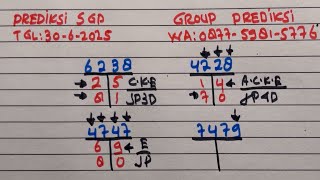 PREDIKSI SGP
TGL:30-6-2025
GROUP PREDIKSI
WA:0877-5981-5776
6238
2 5 C.K.E
0 1 JP3D
4228
1 4 A.C.K.E
7 0 JP4D
4747
6 9 E
0 0 JP
7479